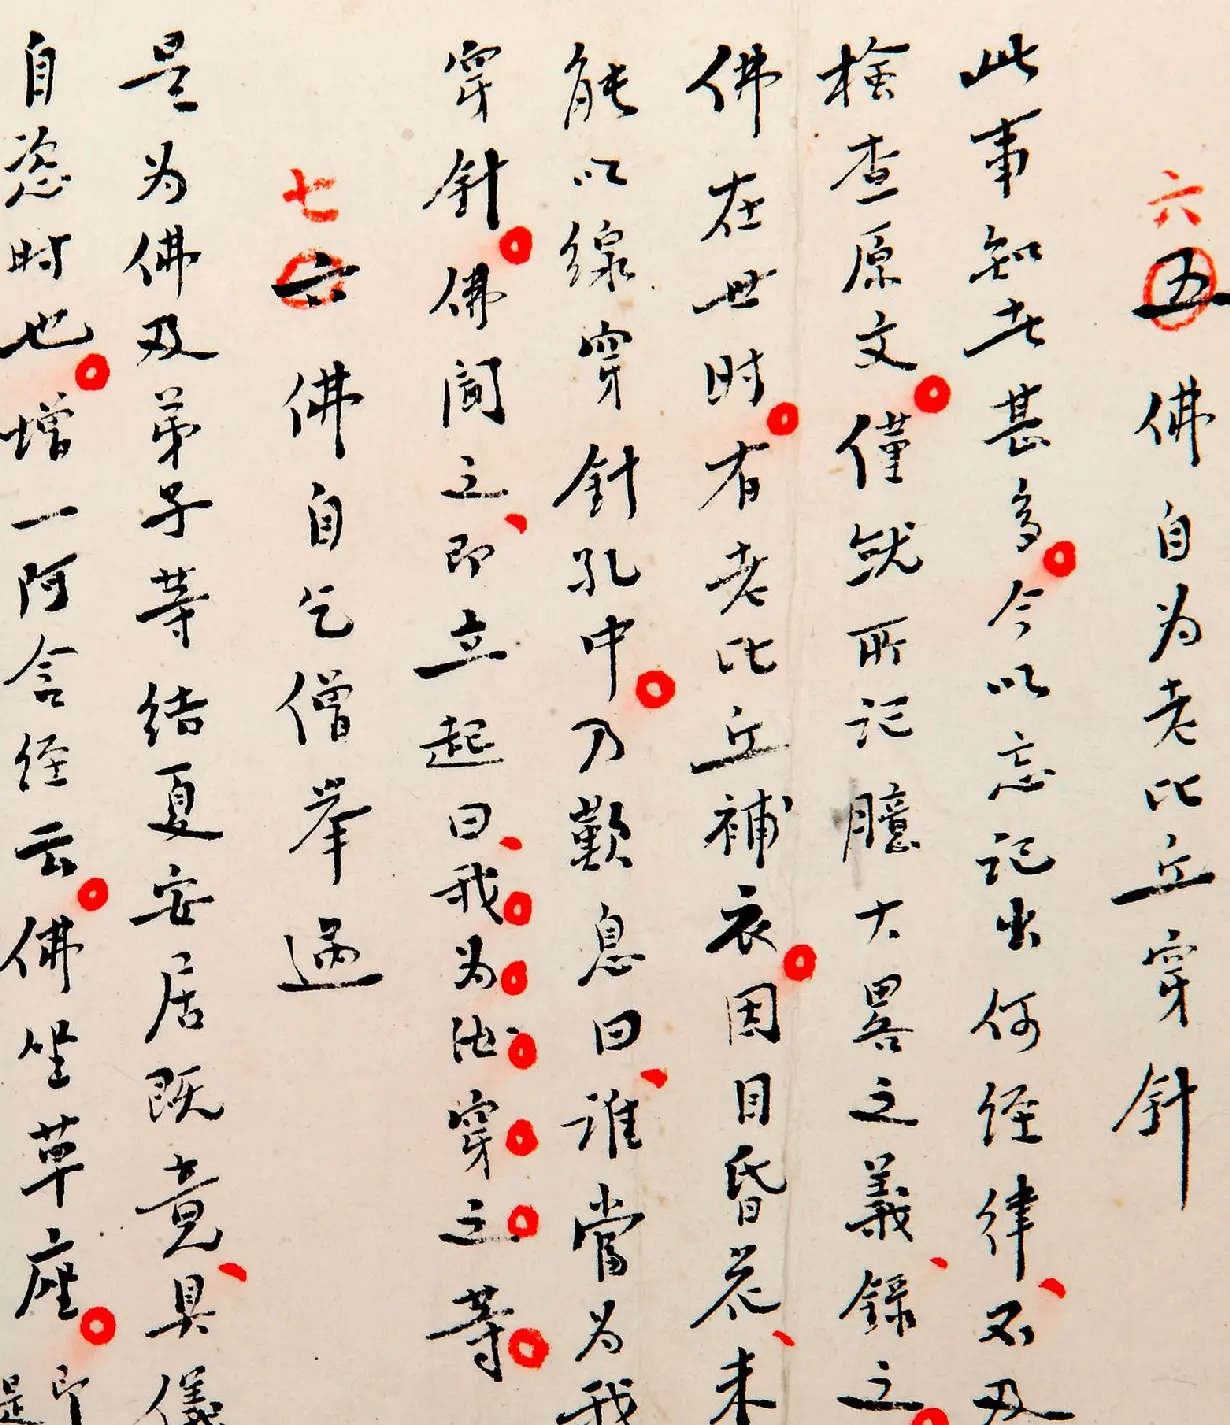 六五 佛自为老比丘穿针
此事知者甚多。今以忘记出何经律、不及
检查原文。僅就所记臆大畧之義、録之。
佛在世时。有老比丘補衣。因目昏花、未
能以線穿針孔中。乃歎息曰、谁當为我
穿針。佛闻之、即立起曰、我为汝穿之等。
七六 佛自乞僧举过
是为佛及弟子等结夏安居既竟、具儀
自恣时也。增一阿含经云。佛坐草座。即是